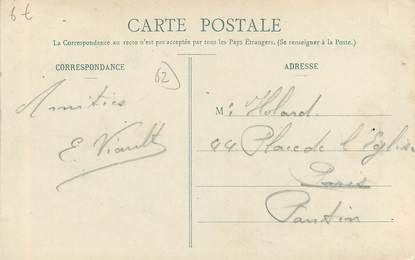 6€
CARTE POSTALE
La Correspondance au recto n'est pas acceptée par tous les Pays Étrangers. (Se renseigner à la Poste.)
CORRESPONDANCE
62
ADRESSE
Amitiés
E. Viault
M: Holard
44 Place de l'Eglise
Paris
Pantin